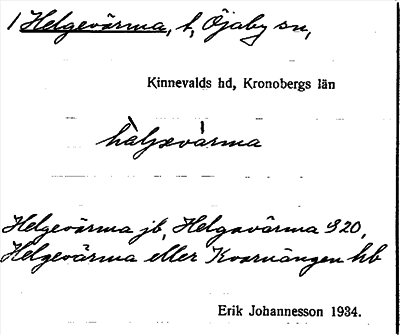 1 Helgevärma, t, Öjaby sn,
Kinnevalds hd, Kronobergs län
hàljævárma
Helgevärma jb, Helgavärma 920,
Helgevärma eller Kvarnängen hb
Erik Johannesson 1934.